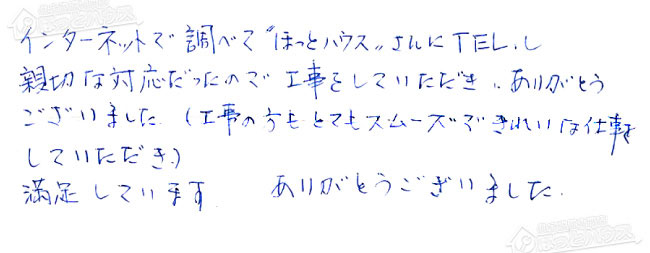 インターネットで調べて"ほっとハウス"さんにTEL.し
親切な対応だったので工事をしていただき、ありがとう
ございました (工事の方もとてもスムーズできれいな仕事を
していただき)
満足しています ありがとうございました.